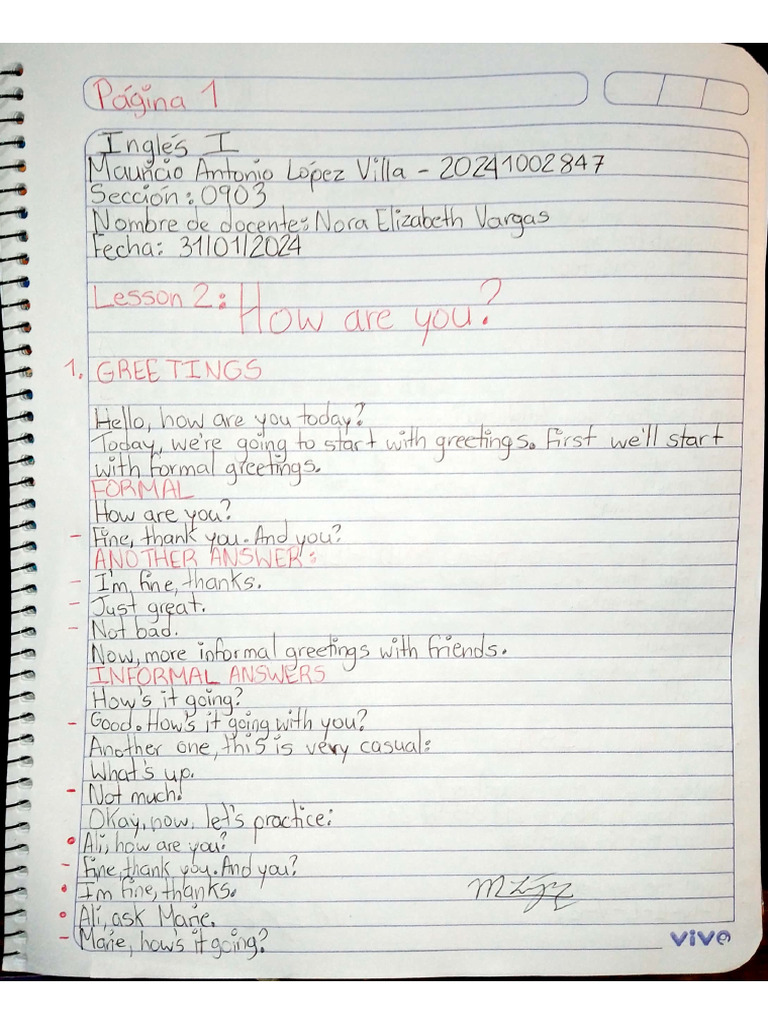 Página 1
Inglés I
Mauricio Antonio López Villa - 20241002847
Sección: 0903
Nombre de docente: Nora Elizabeth Vargas
Fecha: 31/01/2024
Lesson 2: How are you?
1. GREETINGS
Hello, how are you today?
Today, we're going to start with greetings. First we'll start
with formal greetings.
FORMAL
How are you?
- Fine, thank you. And you?
ANOTHER ANSWER:
- I'm, fine, thanks.
- Just great.
- Not bad.
Now, more informal greetings with friends.
INFORMAL ANSWERS
How's it going?
- Good. How's it going with you?
Another one, this is very casual:
What's up.
- Not much!
Okay, now, let's practice:
• Ali, how are you?
- Fine, thank you. And you?
• I'm fine, thanks.
• Ali, ask Marie.
- Marie, how's it going?
vivo